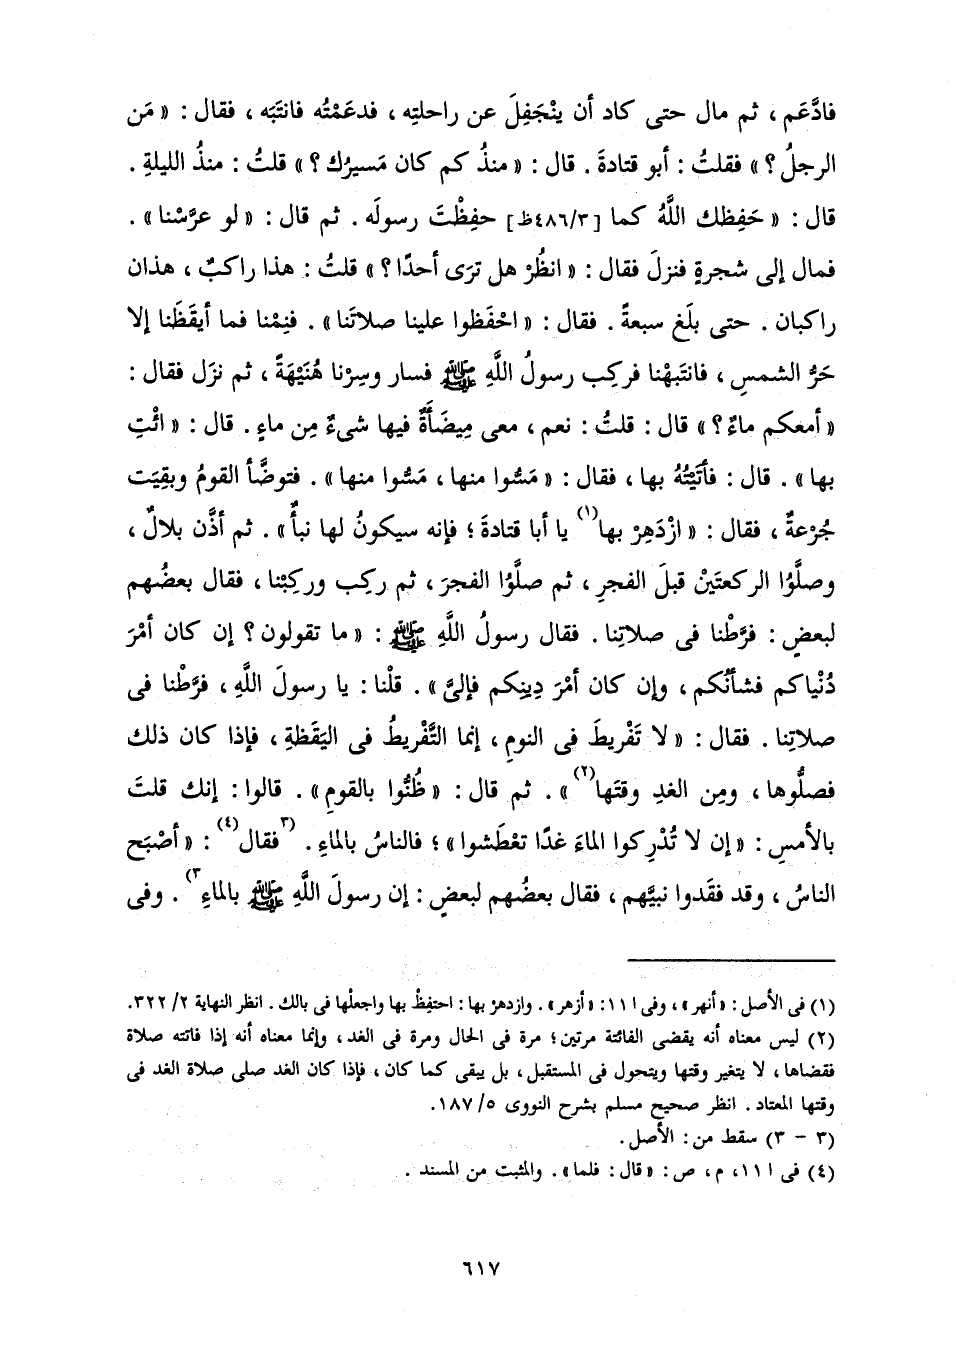 فادَّعَم ، ثم مال حتى كاد أن ينْجَفِلَ عن راحلتِه ، فدعَمْتُه فانتَبَه ، فقال : « مَن
الرجلُ ؟ » فقلتُ : أبو قتادةَ . قال : « منذُ كم كان مَسيرُك ؟ » قلتُ : منذُ الليلةِ .
قال : « حَفِظك اللَّهُ كما [٤٨٦/٣ظ] حفِظْتَ رسولَه . ثم قال : « لو عرَّسْنا » .
فمال إلى شجرةٍ فنزلَ فقال : « انظُرْ هل ترَى أحدًا ؟ » قلتُ : هذا راكبٌ ، هذان
راكبان . حتى بلَغ سبعةً . فقال : « احْفَظوا علينا صلاتَنا » . فنِمْنا فما أيقَظَنا إلا
حَرُّ الشمسِ ، فانتَبهْنا فركِب رسولُ اللَّهِ ﷺ فسار وسِرْنا هُنَيْهَةً ، ثم نزَل فقال :
« أمعكم ماءٌ ؟ » قال : قلتُ : نعم ، معى مِيضَأَةٌ فيها شىءٌ مِن ماءٍ . قال : « ائْتِ
بها » . قال : فأتَيْتُهُ بها ، فقال : « مَسُّوا منها ، مَسُّوا منها » . فتوضَّأ القومُ وبقِيَت
جُرْعةٌ ، فقال : « ازْدَهِرْ بها(١) يا أبا قتادةَ ؛ فإنه سيكونُ لها نبأٌ » . ثم أذَّن بلالٌ ،
وصلَّوُا الركعتَيْن قبلَ الفجرِ ، ثم صلَّوُا الفجرَ ، ثم ركِب وركِبْنا ، فقال بعضُهم
لبعضٍ : فرَّطْنا فى صلاتِنا . فقال رسولُ اللَّهِ ﷺ : « ما تقولون ؟ إن كان أمْرَ
دُنْياكم فشأنُكم ، وإن كان أمْرَ دِينِكم فإلىَّ » . قلْنا : يا رسولَ اللَّهِ ، فرَّطْنا فى
صلاتِنا . فقال : « لا تَفْريطَ فى النومِ ، إنما التَّفْريطُ فى اليَقَظةِ ، فإذا كان ذلك
فصلُّوها ، ومِن الغدِ وقتَها(٢) » . ثم قال : « ظُنُّوا بالقومِ » . قالوا : إنك قلتَ
بالأمسِ : « إن لا تُدْرِكوا الماءَ غدًا تعْطَشوا » ؛ فالناسُ بالماءِ . (٣فقال(٤) : « أصْبَح
الناسُ ، وقد فقَدوا نبيَّهم ، فقال بعضُهم لبعضٍ : إن رسولَ اللَّهِ ﷺ بالماءِ٣) . وفى
(١) فى الأصل : « أنهر » ، وفى ا ١١: « أزهر » . وازدهرْ بها : احتفِظْ بها واجعلْها فى بالك . انظر النهاية ٢/ ٣٢٢.
(٢) ليس معناه أنه يقضى الفائتة مرتين ؛ مرة فى الحال ومرة فى الغد ، وإنما معناه أنه إذا فاتته صلاة
فقضاها ، لا يتغير وقتها ويتحول فى المستقبل ، بل يبقى كما كان ، فإذا كان الغد صلى صلاة الغد فى
وقتها المعتاد . انظر صحيح مسلم بشرح النووى ٥/ ١٨٧.
(٣ - ٣) سقط من : الأصل .
(٤) فى ا ١١، م ، ص : « قال : فلما » . والمثبت من المسند .
٦١٧